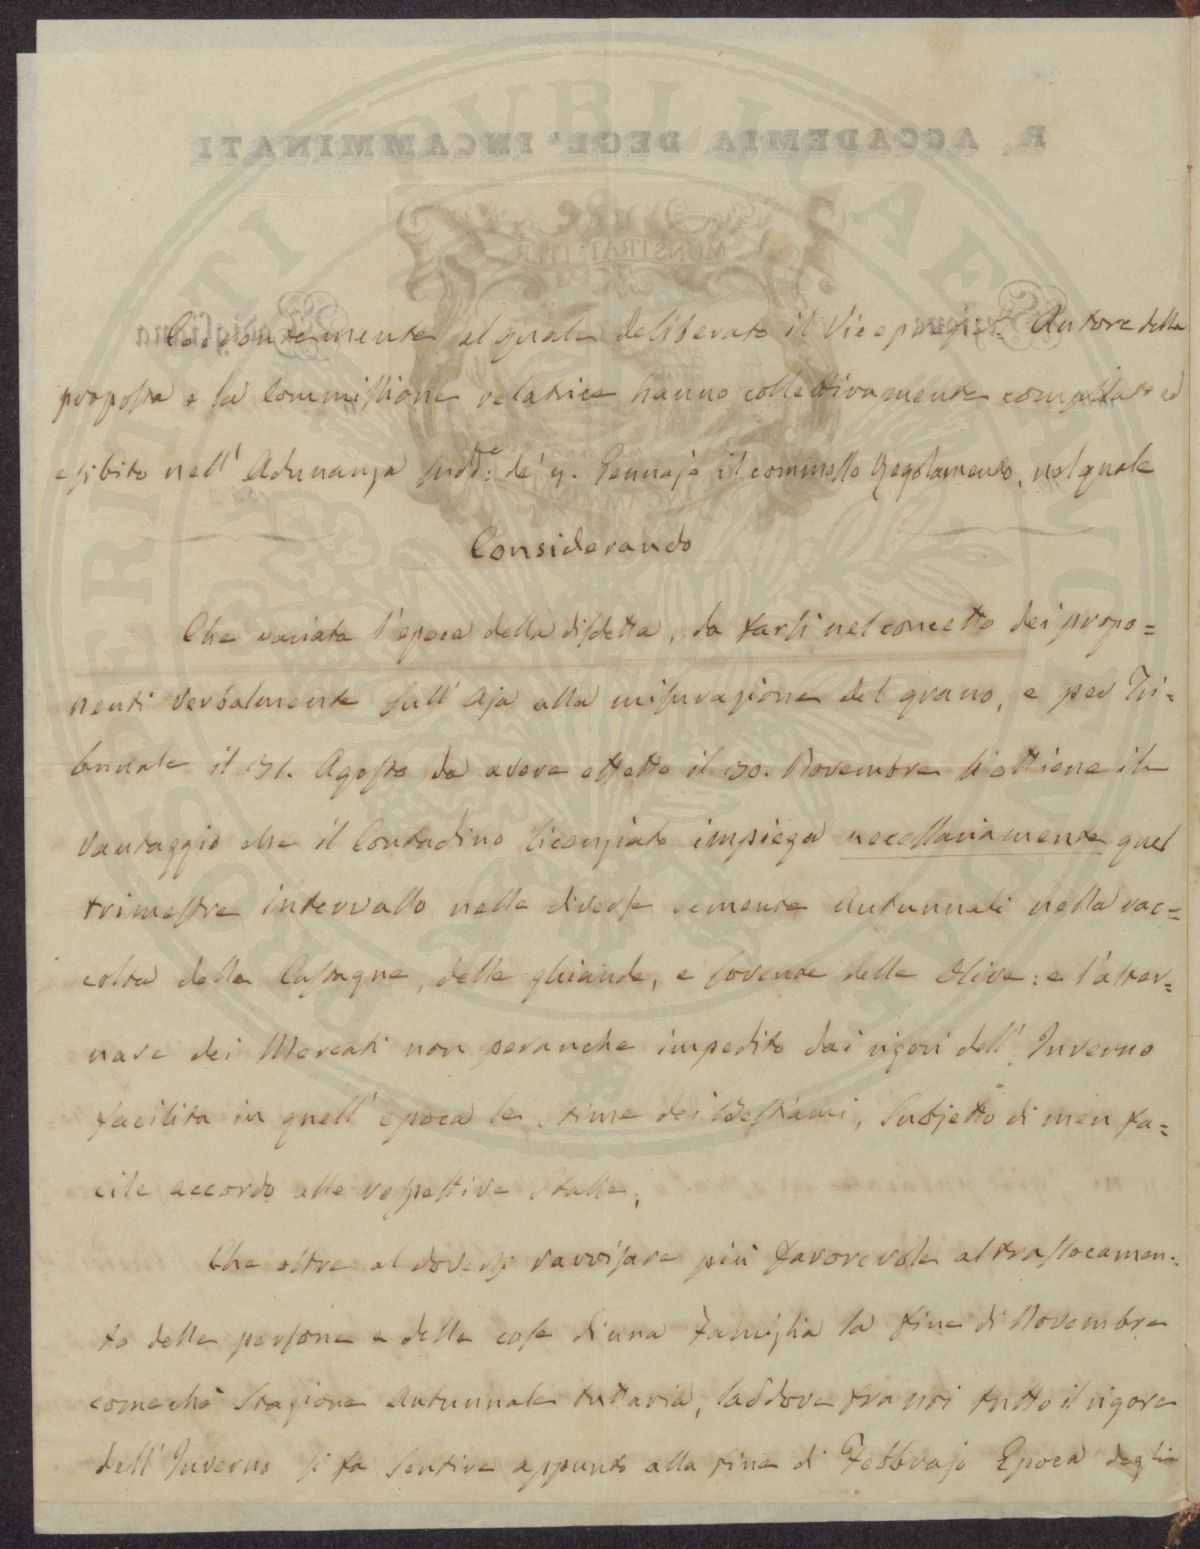 R. ACCADEMIA DEGL' INCAMMINATI
MONSTRAT ITER
Coerentemente al quale deliberato il Vicepresid.e Autore della
proposta e la Commissione relatrice hanno collettivamente compilato ed
esibito nell' Adunanza sudd.a de' 9. Gennajo il commesso Regolamento, nel quale
Considerando
Che variata l'epoca della disdetta, da farsi nel concetto dei propo=
nenti verbalmente sull' Aja alla misurazione del grano, e per Tri=
bunale il 31. Agosto da avere effetto il 30. Novembre si ottiene il
vantaggio che il Contadino licenziato impiega necessariamente quel
trimestre intervallo nelle diverse semente Autunnali nella rac=
colta delle Castagne, delle ghiande, e sovente delle Olive: e l'alter=
nare dei Mercati non peranche impedito dai rigori dell' Inverno
facilita in quell' epoca le stime dei Bestiami, Subjetto di men fa=
cile accordo alle respettive Stalle;
Che oltre al doversi ravvisare più favorevole al traslocamen=
to delle persone e delle cose di una Famiglia la fine di Novembre
comechè Stagione Autunnale tuttavia, laddove fra noi tutto il rigore
dell' Inverno si fa sentire appunto alla fine di Febbrajo Epoca degli